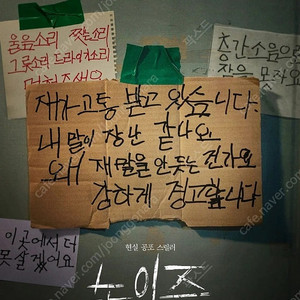 울음소리 쿵쿵소리
그릇소리 드라이소리
멈춰주세요
층간소음으로
잠을 못자요
제가 고통 받고 있습니다.
내 말이 장난 같나요
왜 제 말을 안 듣는 건가요
강하게 경고합니다
이곳에서 더
못 살겠어요
현실 공포 스릴러
노이즈